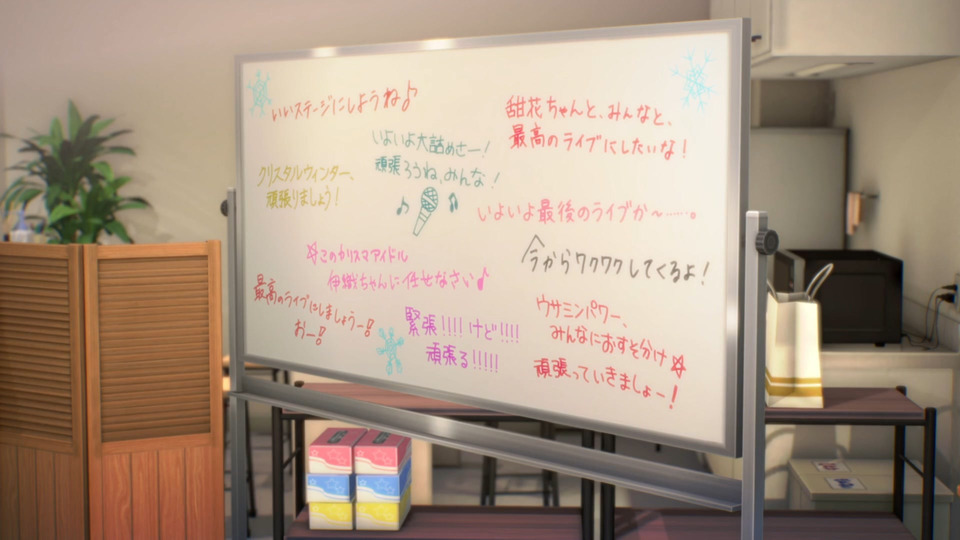 いいステージにしようね♪
甜花ちゃんと、みんなと、
最高のライブにしたいな！
いよいよ大詰めせー！
頑張ろうね、みんな！
クリスタルウィンター、
頑張りましょう！
いよいよ最後のライブか〜……。
☆このカリスマアイドル
伊織ちゃんに任せなさい♪
今からワクワクしてくるよ！
最高のライブにしましょうー！
おー！
緊張！！！！けど！！！！
頑張る！！！！！
ウサミンパワー、
みんなにおすそ分け☆
頑張っていきましょー！